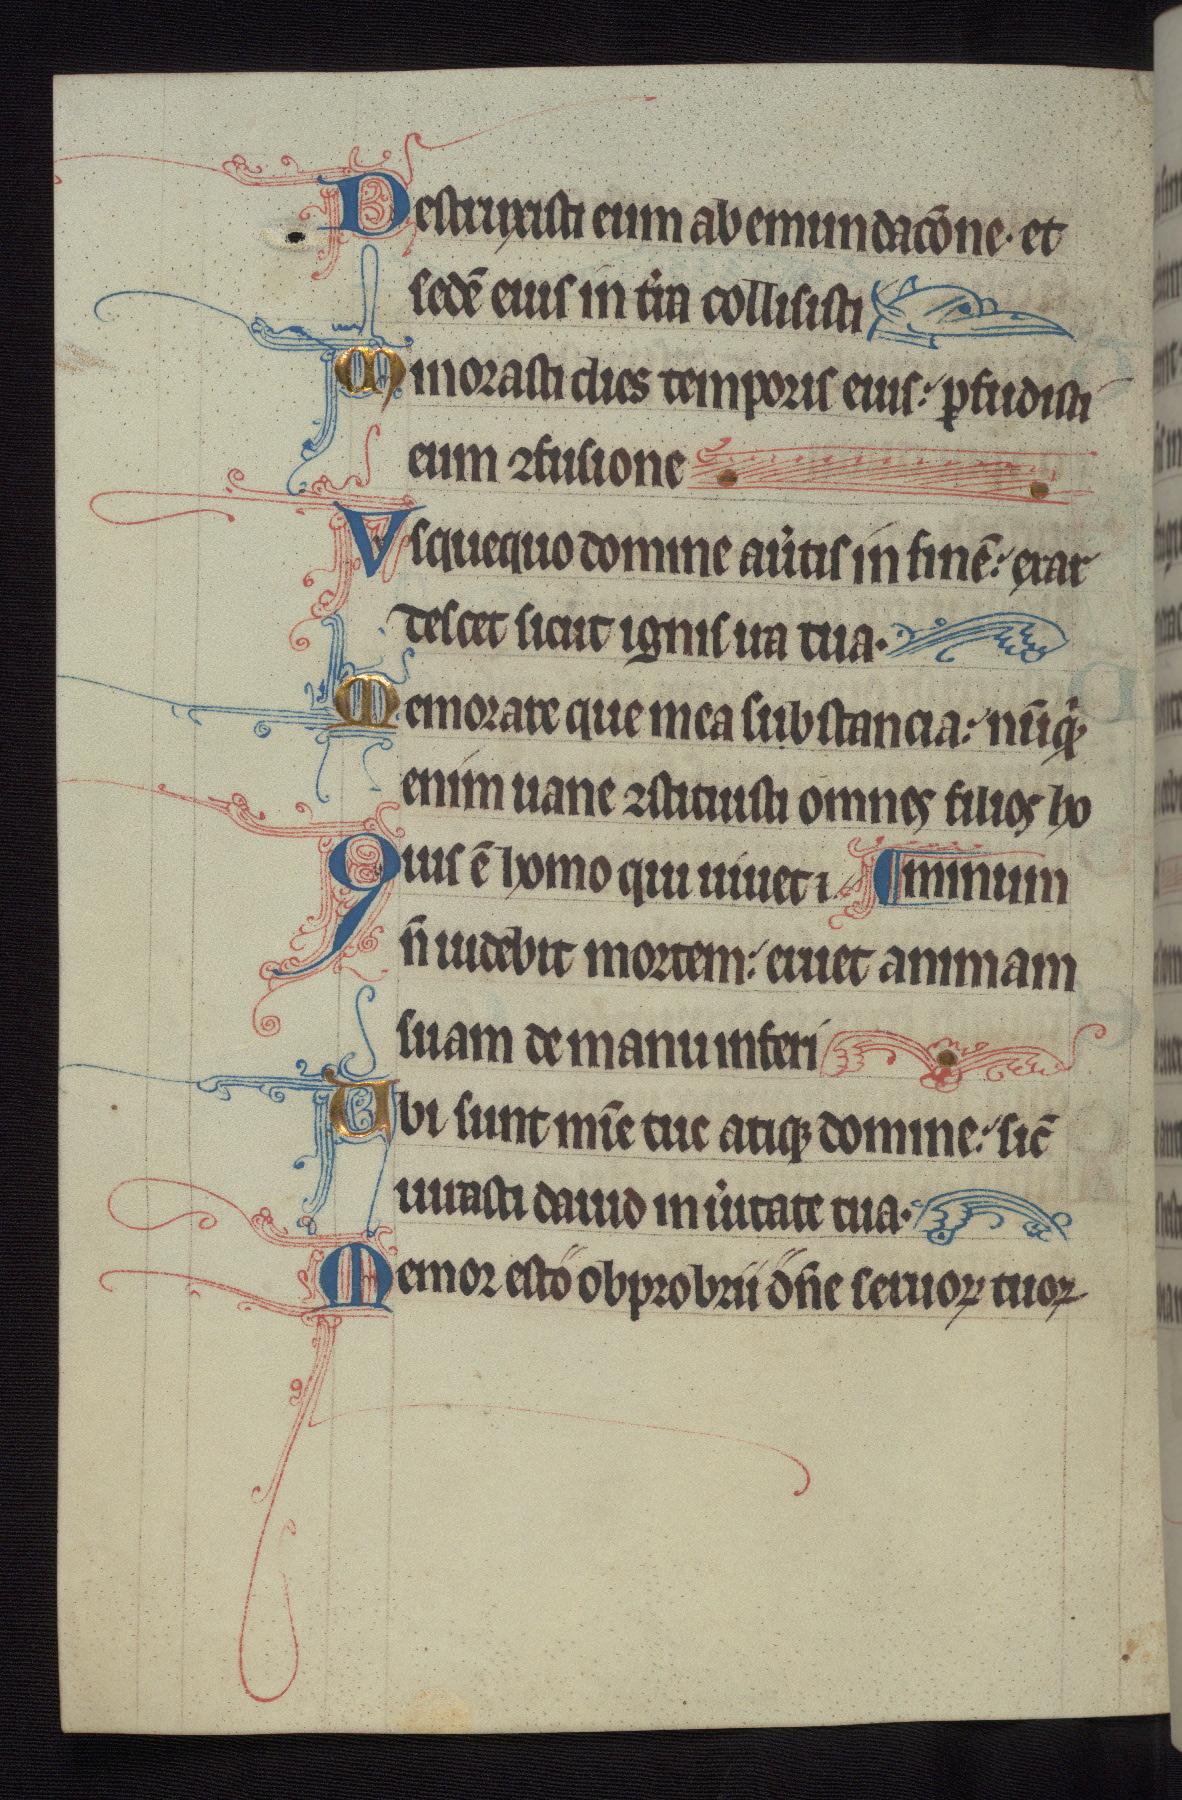 Destruxisti eum ab emundac̃one· et
sedẽ eius in t̾ra collisisti
Minorasti dies temporis eius: ꝑfudisti
eum ꝯfusione
Vsquequo domine au̾tis in finẽ: exar
descet sicut ignis ira tua·
Memorare que mea substancia: nũq̾
enim uane ꝯstituisti omnes filios ho
Quis ẽ homo qui uiuet ⁊ ¶minum
ñ uidebit mortem: eruet animam
suam de manu inferi
Ubi sunt mĩe tue antiq̢ domine: sic̃
iurasti dauid in u̾itate tua·
Memor esto obprobrii dñe seruoꝝ tuoꝝ